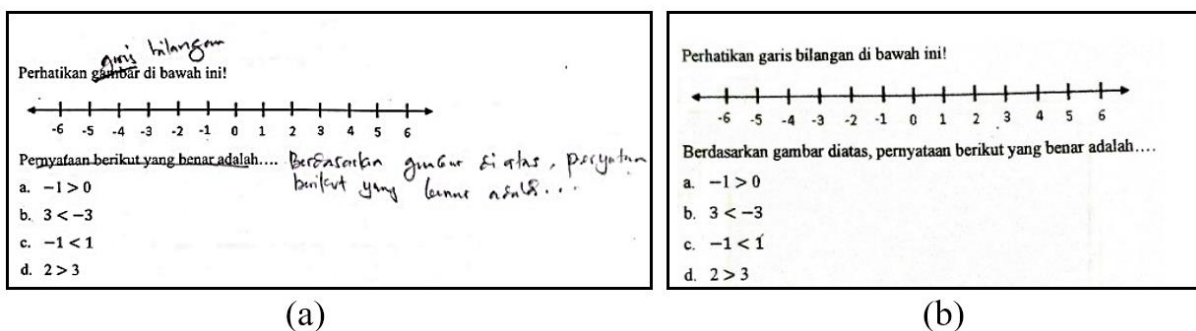 garis bilangan
Perhatikan gambar di bawah ini!
-6 -5 -4 -3 -2 -1 0 1 2 3 4 5 6
Pernyataan berikut yang benar adalah.... Berdasarkan gambar di atas, pernyataan
berikut yang benar adalah...
a. −1 > 0
b. 3 < −3
c. −1 < 1
d. 2 > 3
(a)
Perhatikan garis bilangan di bawah ini!
-6 -5 -4 -3 -2 -1 0 1 2 3 4 5 6
Berdasarkan gambar diatas, pernyataan berikut yang benar adalah....
a. −1 > 0
b. 3 < −3
c. −1 < 1
d. 2 > 3
(b)